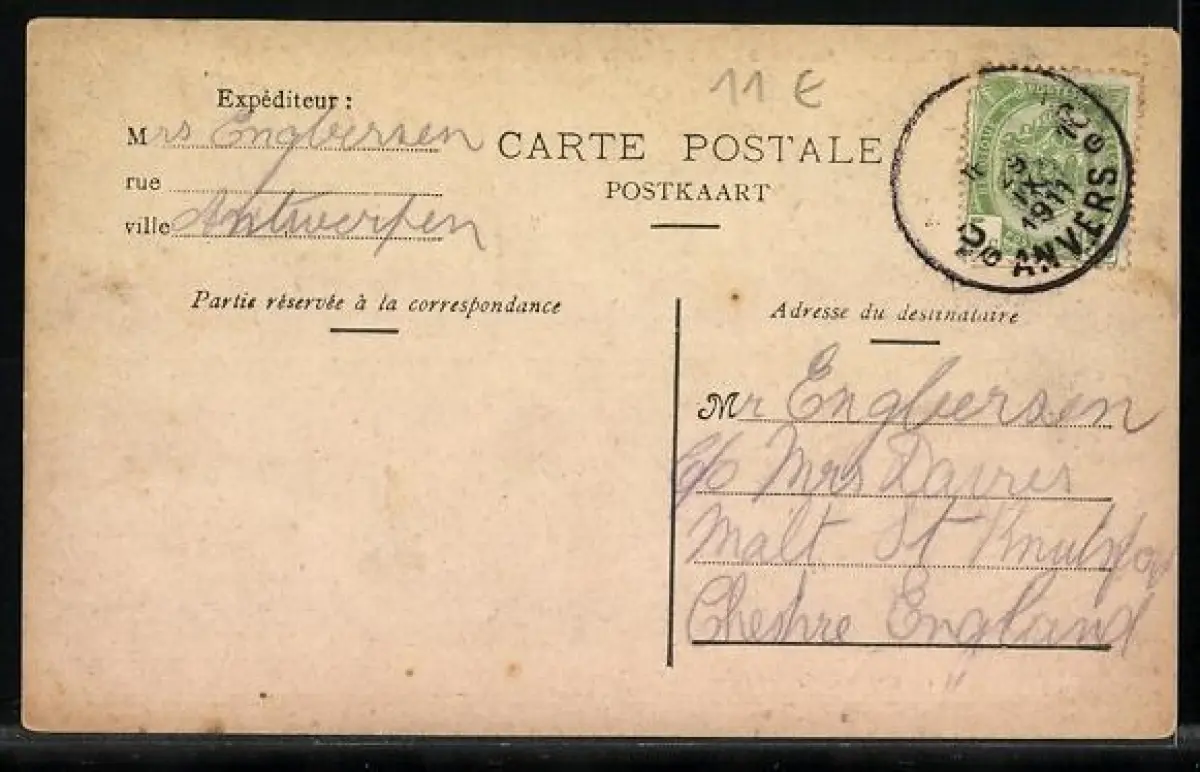 11 €
Expéditeur :
Mrs Engbersen
rue
ville Antwerpen
CARTE POSTALE
POSTKAART
5
ANVERS
IX
1911
Partie réservée à la correspondance
Adresse du destinataire
Mr Engbersen
c/o Mrs Davies
Malt St
Cheshre England